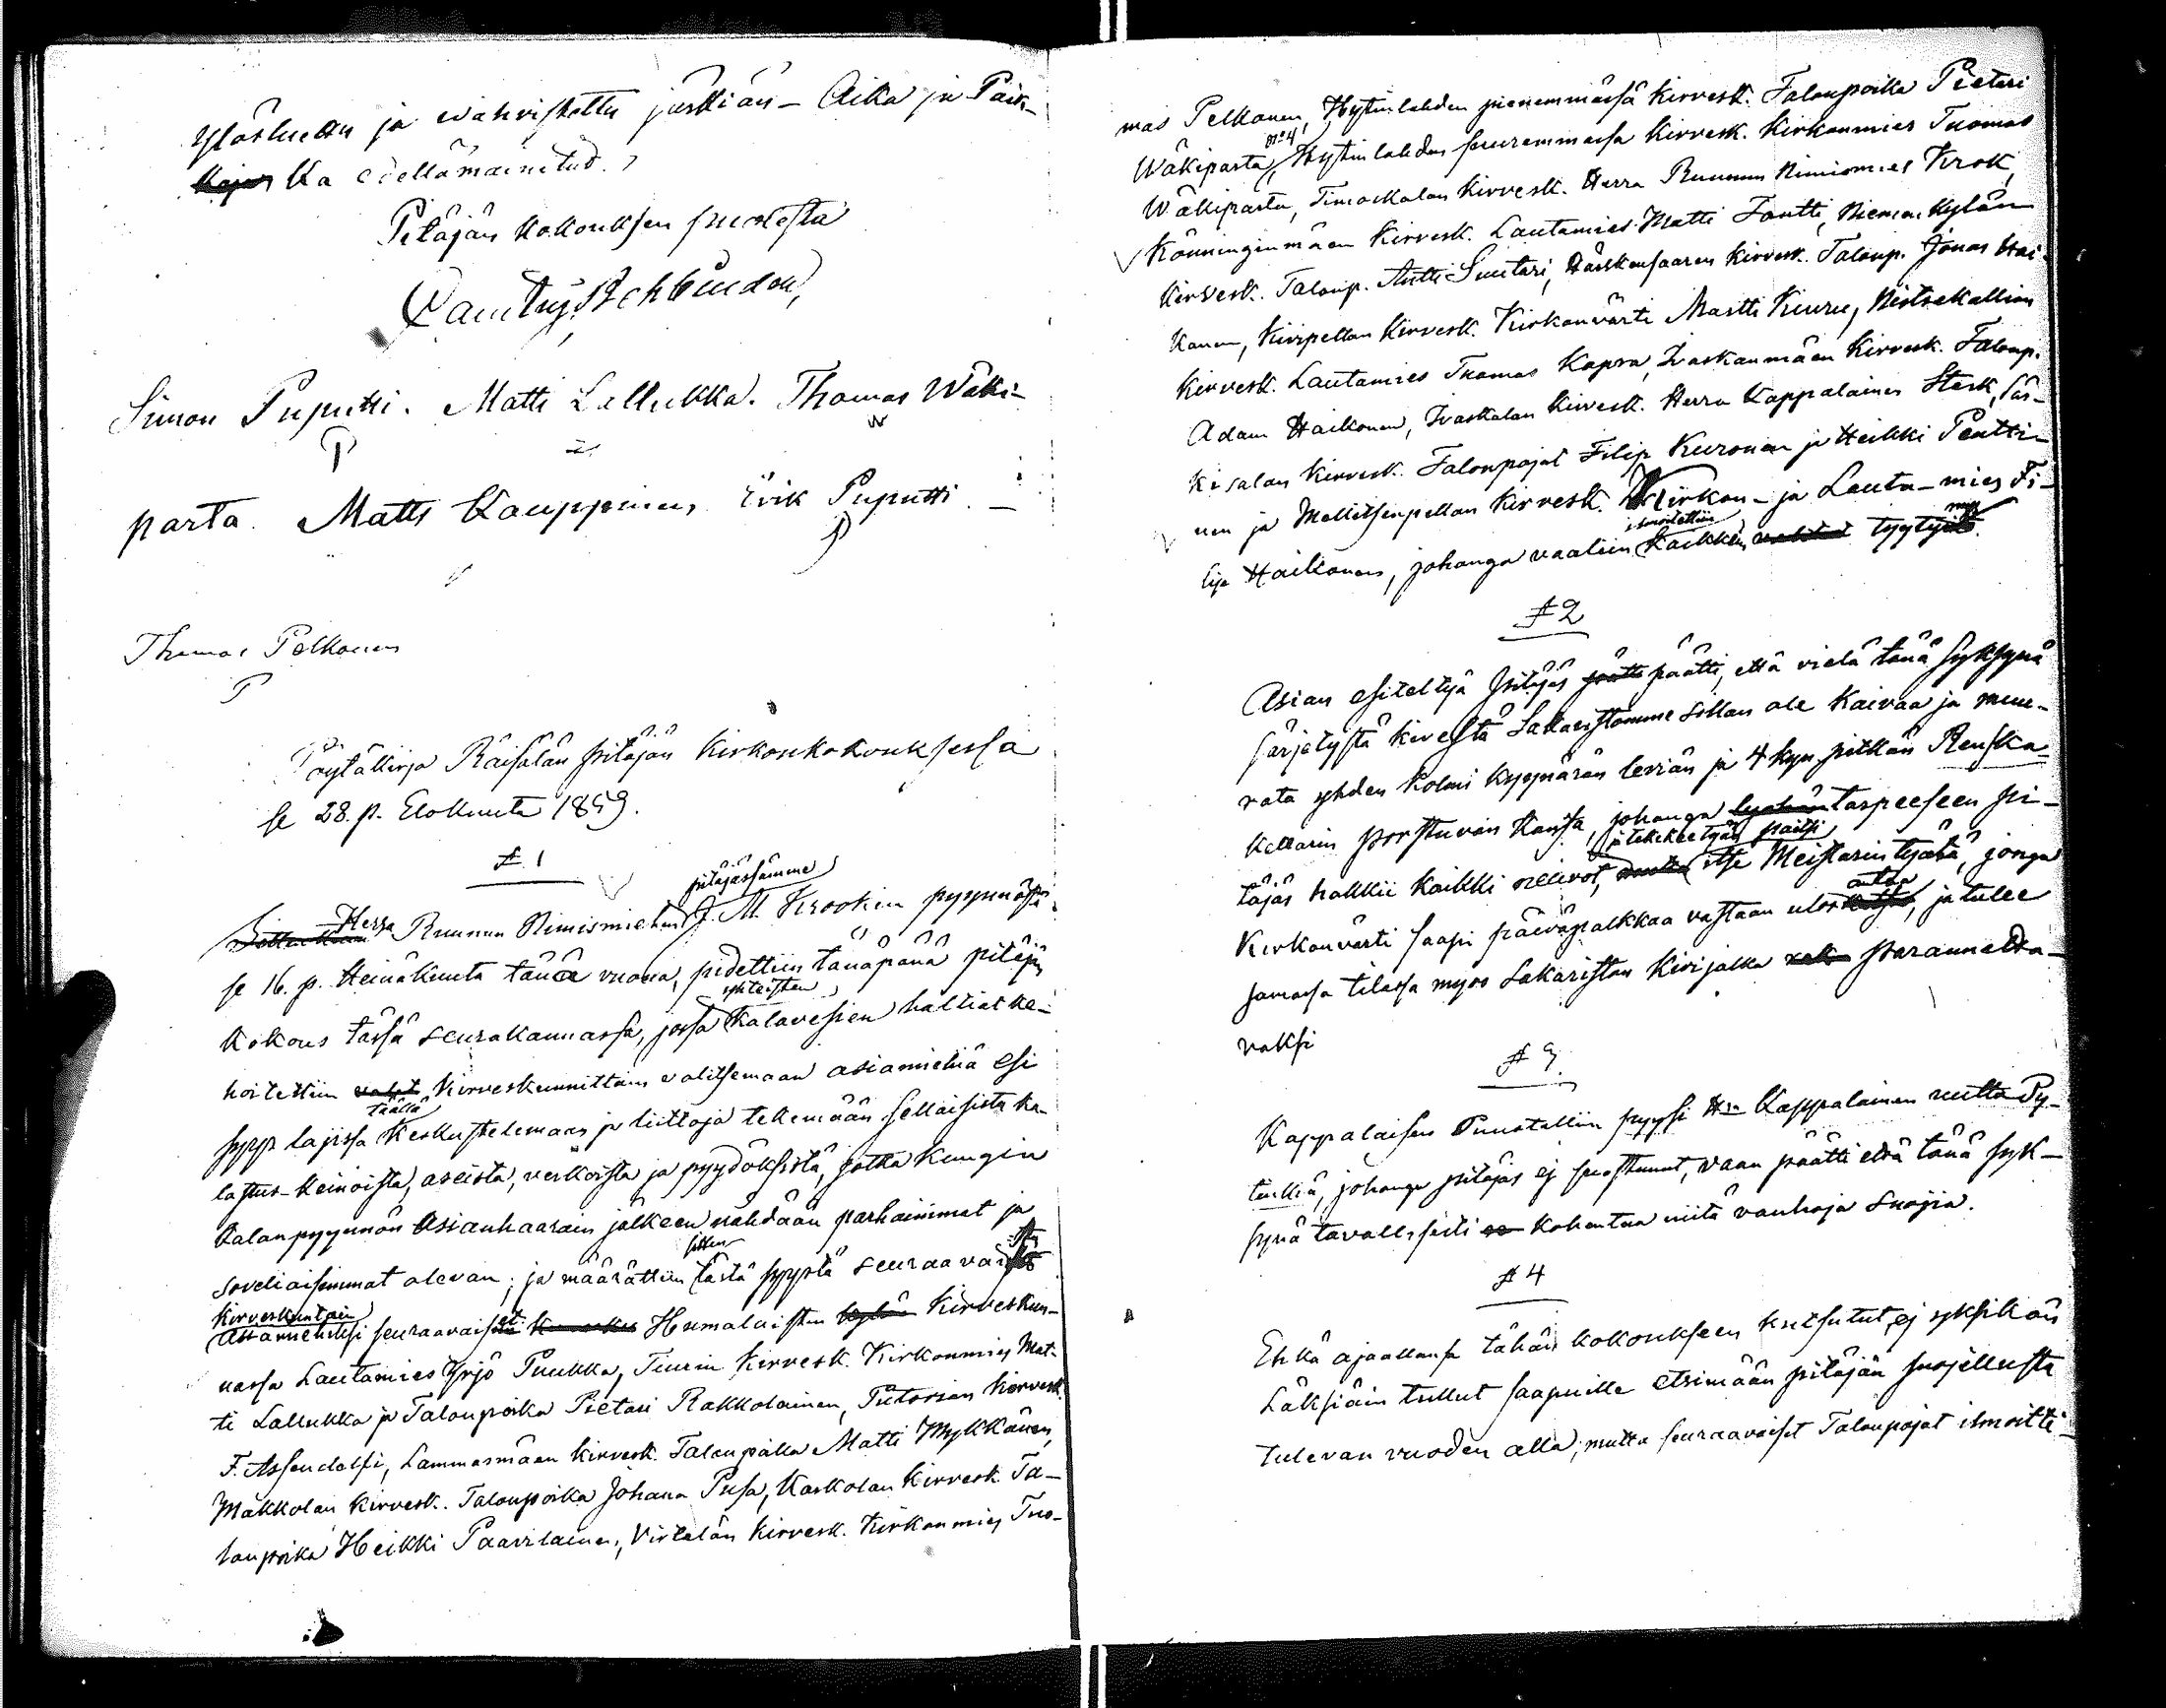 Ylösluettu ja wahvistettu juskiäns – Aika ja Paik-
ka edellämainitud.
Pitäjän Kokouksen puolesta
Simon Puputti. Matti Lallukka. Thomas Wäki-
P W
parta. Matts Kauppinen Erik Puputti
P
Thomas Pelkonen
P
Pöytäkirja Räisälän pitäjän Kirkonkokouksessa
se 28. p. Elokuuta 1859.
§ 1
pitäjässämme
Herra Ruunun Nimismiehen J. M. Krookin pyynnöstä
se 16. p. Heinäkuuta tänä vuona, pidettiin tänäpänä pitäjän
yhteisten
kokous tässä seurakunnassa, jossa Kalavesien haltiat ke-
hoitettiin Kirveskunnittain valitsemaan asiamiehiä esi
täällä
syys lajissa Keskustelemaan ja liittoja tekemään sellaisista ka-
lastus-keinoista, aseista, verkoista ja pyydöksistä, jotka Kungin
Kalanpyynnön Asianhaarain jälkeen nähdään parhaimmat ja
sitten
soveliaisimmat olevan; ja määrättiin tästä syystä seuraavat
Kirveskuntain
Asiamiehiksi seuraavaiset Humalaisten Kirveskun-
nassa Lautamies Yrjö Puukka, Tiurin Kirvesk. Kirkonmies Mat-
ti Lallukka ja Talonpoika Pietari Rakkolainen, Pietorian Kirvesk.
F. Assendelfi, Lammasmäen Kirvesk. Talonpoika Matti Mykkänen,
Mäkkolan Kirvesk. Talonpoika Johana Pusa, Kaskolan Kirvesk. Ta-
lonpoika Heikki Paavilainen, Virtelän Kirvesk. Kirkonmies Tuo-
mas Pelkonen, Hytinlahden pienemmässä Kirvesk. Talonpoika Pietari
N:o 4
Wäkiparta, Hytinlahden suuremmassa Kirvesk. Kirkonmies Tuomas
Wäkiparta, Timoskalan Kirvesk. Herra Ruunun Nimismies Krok,
Könninginmäen Kirvesk. Lautamies Matti Tontti, Niemenkylän
Kirvesk. Talonp. Antti Suutari, Häskensaaren Kirvesk. Talonp. Jonas Hai-
konen, Kiirpellon Kirvesk. Kirkonvärti Martti Kiuru, Nistsekallion
Kirvesk. Lautamies Tuomas Kopra, Ivaskanmäen Kirvesk. Talonp.
Adam Haikonen, Ivaskalan Kirvesk. Herra Kappalainen Stark, Sär-
kisalan Kirvesk. Talonpojat Filip Kuronen ja Heikki Pentti-
nen ja Mellitsenpellon Kirvesk. Kirkon- ja Lauta-mies Fi-
ilmoitettiin
lip Haikonen, johonga vaaliin Kaikkein tyytyv
§ 2
Asian esiteltyä Pitäjäs päätti, että vielä tänä syksynä
särjetystä kivestä Sakaristomme sillan ale Kaivaa ja muu-
rata yhden Kolmi kyynärän levian ja 4 kyn. pitkän Renska-
kellarin porstuvan Kanssa, johonga tarpeeseen pi-
ja tekekee työn paitsi
täjäs hakkii Kaikki neuvot, itse Meistarin työtä, jonga
antaa
Kirkonvärti saapi päiväpalkkaa vastaan ulos, ja tulee
samassa tilassa myös Sakaristan Kivijalka parannetta-
vaksi
§ 3
Kappalaisen Puustelliin pyysi H:ra Kappalainen uutta Py-
tinkiä, johonga pitäjäs ej suostunut, vaan päätti että tänä syk-
synä tavallisesti kohentaa niitä vanhoja suojia.
§ 4
Ehkä ajaallansa tähän kokoukseen kutsutut, ej yksikän
Läksiäin tullut saapuille etsimään pitäjän suojellusta
tulevan vuoden alla; mutta seuraavaiset Talonpojat ilmoitti-